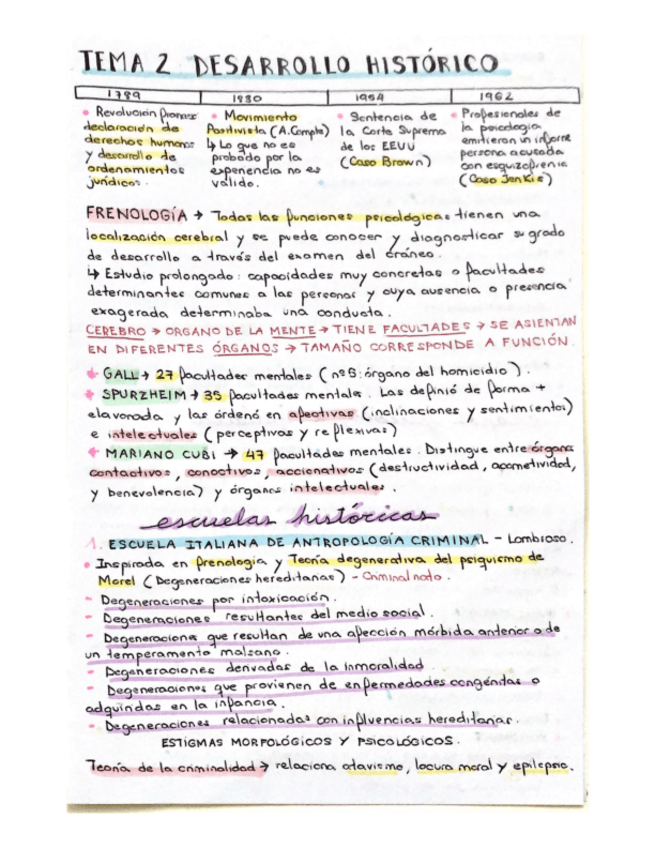 TEMA 2 DESARROLLO HISTÓRICO
1789 1930 1954 1962
• Revolución francesa
declaración de
derechos humanos
y desarrollo de
ordenamientos
jurídicos.
• Movimiento
Positivista (A. Compte)
↳ Lo que no es
probado por la
experiencia no es
válido.
• Sentencia de
la Corte Suprema
de los EEUU
(Caso Brown)
• Profesionales de
la psicología
emitieron un informe
persona acusada
con esquizofrenia
(Caso Jenkis)
FRENOLOGÍA → Todas las funciones psicológicas tienen una
localización cerebral y se puede conocer y diagnosticar su grado
de desarrollo a través del examen del cráneo.
↳ Estudio prolongado: capacidades muy concretas o facultades
determinantes comunes a las personas y cuya ausencia o presencia
exagerada determinaba una conducta.
CEREBRO → ORGANO DE LA MENTE → TIENE FACULTADES → SE ASIENTAN
EN DIFERENTES ÓRGANOS → TAMAÑO CORRESPONDE A FUNCIÓN.
GALL → 27 facultades mentales (nº5: órgano del homicidio).
SPURZHEIM → 35 facultades mentales. Las definió de forma +
elavorada y las órdenó en afectivas (inclinaciones y sentimientos)
e intelectuales (perceptivas y reflexivas)
MARIANO CUBI → 47 facultades mentales. Distingue entre órganos
contactivos, conoctivos, accionativos (destructividad, acometividad,
y benevolencia) y órganos intelectuales.
escuelas históricas
1. ESCUELA ITALIANA DE ANTROPOLOGÍA CRIMINAL - Lombroso.
• Inspirada en frenologia y Teoría degenerativa del psiquismo de
Morel (Degeneraciones hereditarias) - Criminal nato.
- Degeneraciones por intoxicación.
- Degeneraciones resultantes del medio social.
- Degeneraciones que resultan de una afección mórbida anterior o de
un temperamento malsano.
- Degeneraciones derivadas de la inmoralidad.
- Degeneraciones que provienen de enfermedades congénitas o
adquiridas en la infancia.
- Degeneraciones relacionadas con influencias hereditarias.
ESTIGMAS MORFOLÓGICOS Y PSICOLÓGICOS.
Teoría de la criminalidad → relaciona atavismo, locura moral y epilepsia.